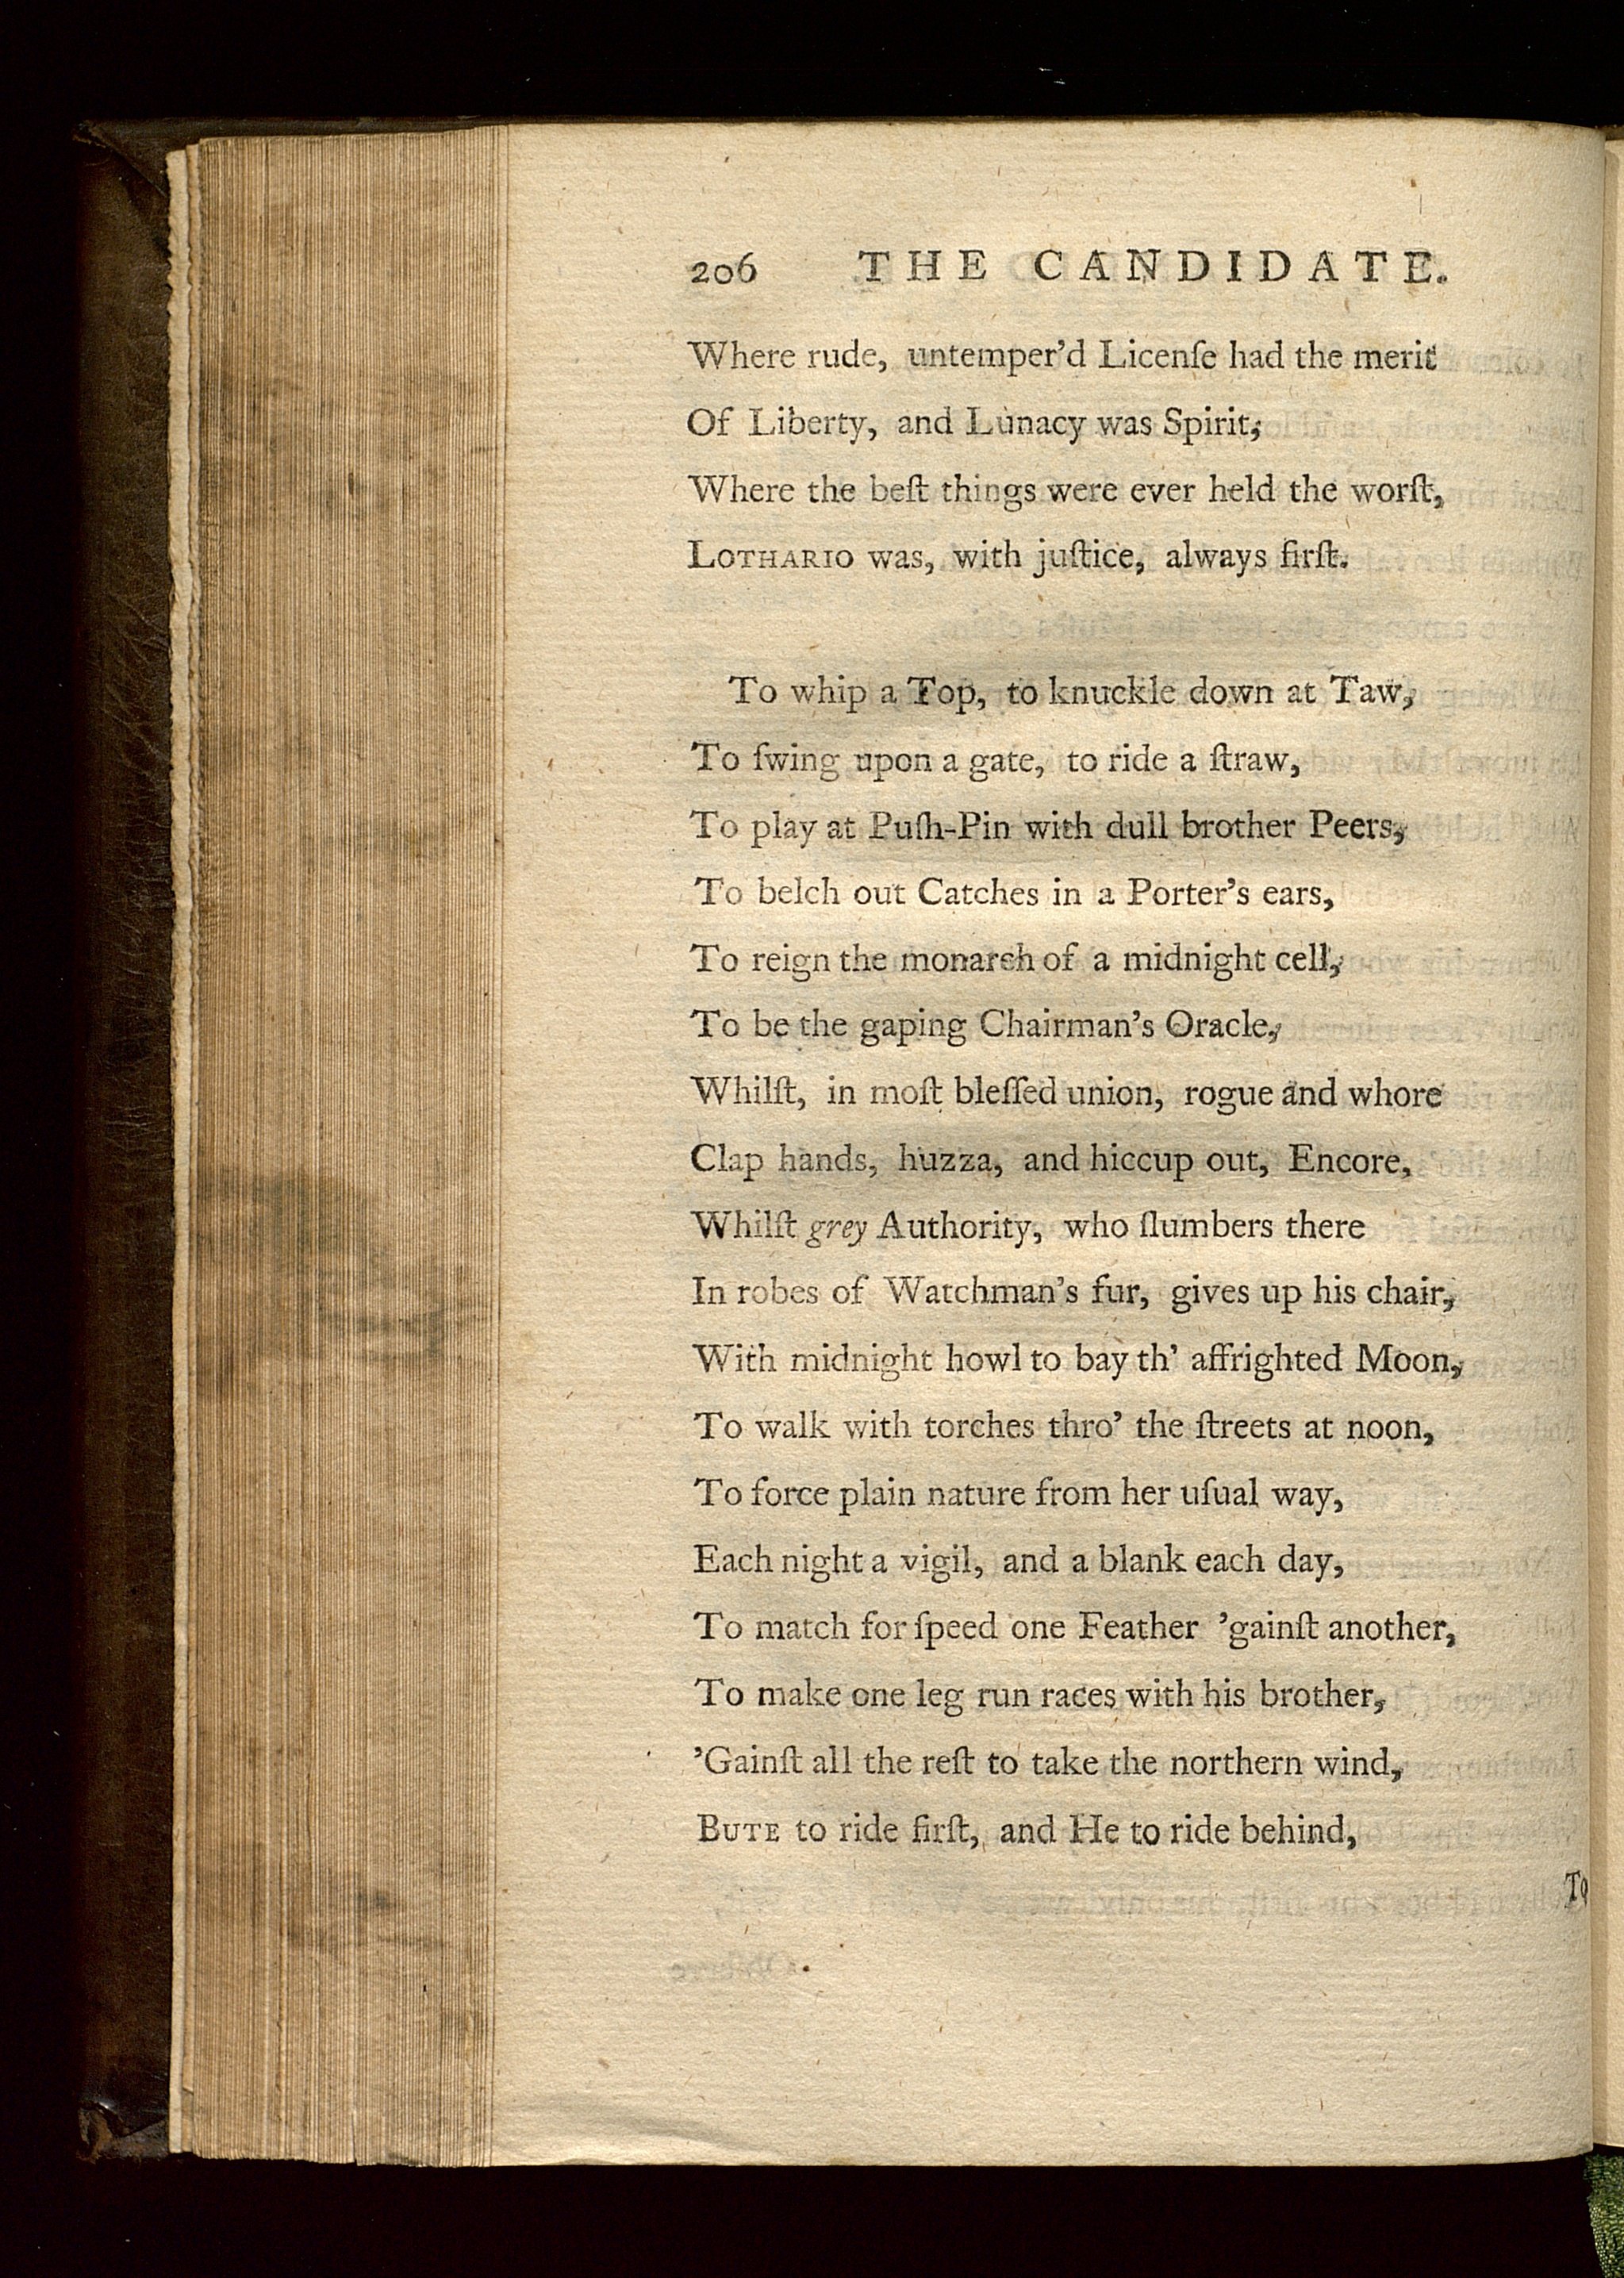 206 THE CANDIDATE.
Where rude, untemper'd Licenſe had the merit
Of Liberty, and Lunacy was Spirit,
Where the beſt things were ever held the worſt,
LOTHARIO was, with juſtice, always firſt.
To whip a Top, to knuckle down at Taw,
To ſwing upon a gate, to ride a ſtraw,
To play at Puſh-Pin with dull brother Peers,
To belch out Catches in a Porter's ears,
To reign the monarch of a midnight cell,
To be the gaping Chairman's Oracle,
Whilſt, in moſt bleſſed union, rogue and whore
Clap hands, huzza, and hiccup out, Encore,
Whilſt grey Authority, who ſlumbers there
In robes of Watchman's fur, gives up his chair,
With midnight howl to bay th' affrighted Moon,
To walk with torches thro' the ſtreets at noon,
To force plain nature from her uſual way,
Each night a vigil, and a blank each day,
To match for ſpeed one Feather 'gainſt another,
To make one leg run races with his brother,
'Gainſt all the reſt to take the northern wind,
BUTE to ride firſt, and He to ride behind,
To